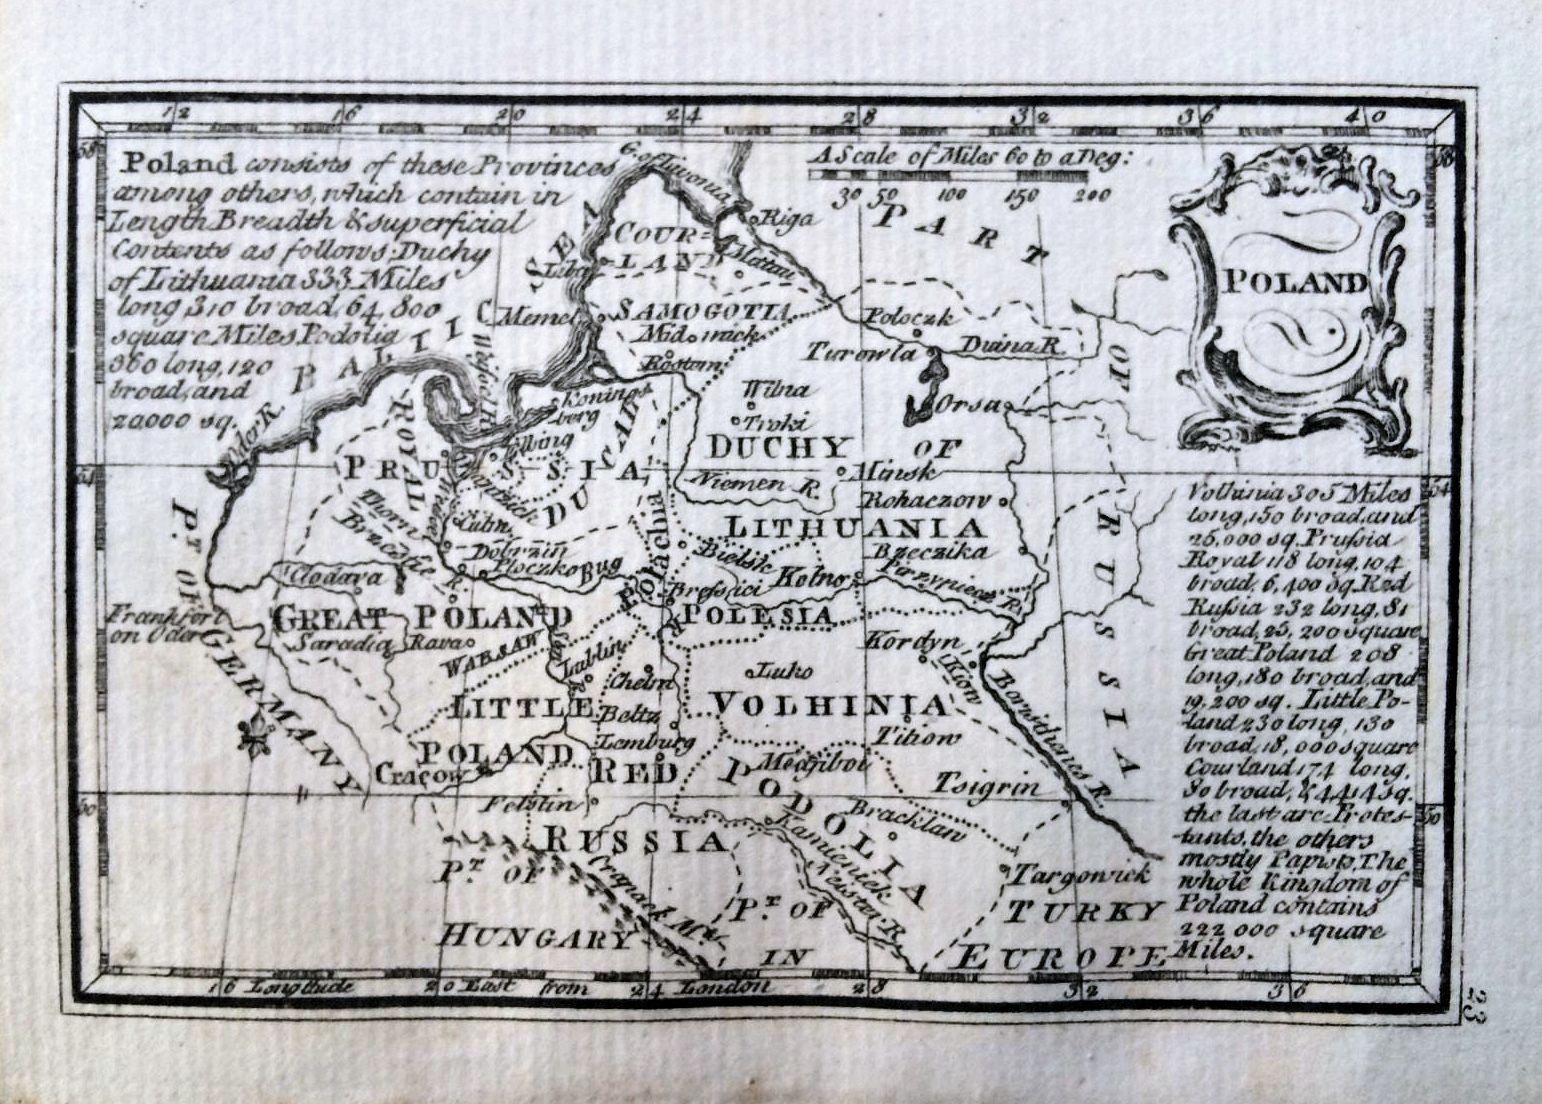 12 16 20 24 28 32 36 40
Poland consists of these Provinces
among others, which contain in
Length Breadth & superficial
Contents as follows; Duchy
of Lithuania 333 Miles
long, 310 broad, 64,800
square Miles Podolia
360 long, 120
broad, and
20000 sq.
A Scale of Miles 60 to a Deg:
30 50 100 150 200
POLAND
G. of Livonia
Riga
PART
OF
RUSSIA
COUR=
LAND
Mittau
SAMOGOTIA
Memel
Midnick
Rostom
BALTIC
SEA
Poloczk
Turowla
Duina R.
Wilna
Troki
Orsa
DUCHY
OF
Minsk
Niemen R.
Rohaczow
LITHUANIA
Konings
berg
Elbing
Oder R.
ROYAL
PRUSSIA
DUCAL
Thorn
Culm
Dobrzin
Ploczko
Bug
Polachia
Bielsk
Bressici
Kolno
Bzeczika
POLESIA
Clodava
GREAT POLAND
Saradia
Rava
WARSAW
Frankfort
on Oder
Pt. OF
GERMANY
Lublin
Chelm
Beltz
Lemburg
LITTLE
POLAND
Cracow
RED
RUSSIA
Felstin
Luko
VOLHINIA
Kordyn
Kiow
Boristhenes R.
Titiow
Medjiboi
PODOLIA
Tsigrin
Bracklaw
Kamieniek
Neister R.
Targowick
Pt. OF
HUNGARY
Crapack Mts.
Pt. OF
TURKY
IN
EUROPE
Volhinia 305 Miles
long, 150 broad, and
25,000 sq. Prussia
Royal 118 long, 104
broad, 6,400 sq. Red
Russia 232 long, 81
broad, 25,200 square
Great Poland 208
long, 180 broad, and
19,200 sq. Little Po-
land 230 long, 130
broad, 18,000 square
Courland 174 long,
80 broad, & 4414 sq.
the last are Protes-
tants, the others
mostly Papists, The
whole Kingdom of
Poland contains
222000 square
Miles.
16 Longitude 20 East from 24 London 28 32 36
23